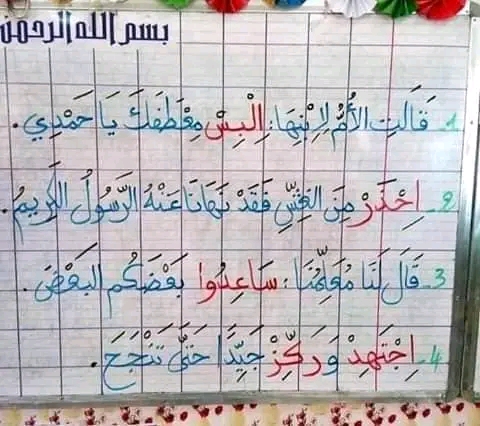 بسم الله الرحمن
1. قَالَتِ الأُمُّ لِابْنِهَا: اِلْبِسْ مِعْطَفَكَ يَا حَمْدِي.
2. اِحْذَرْ مِنَ الغِشِّ فَقَدْ نَهَانَا عَنْهُ الرَّسُولُ الكَرِيمُ.
3. قَالَ لَنَا مُعَلِّمُنَا: سَاعِدُوا بَعْضَكُم البَعْضَ.
4. اِجْتَهِدْ وَرَكِّزْ جَيِّدًا حَتَّى تَنْجَحَ.